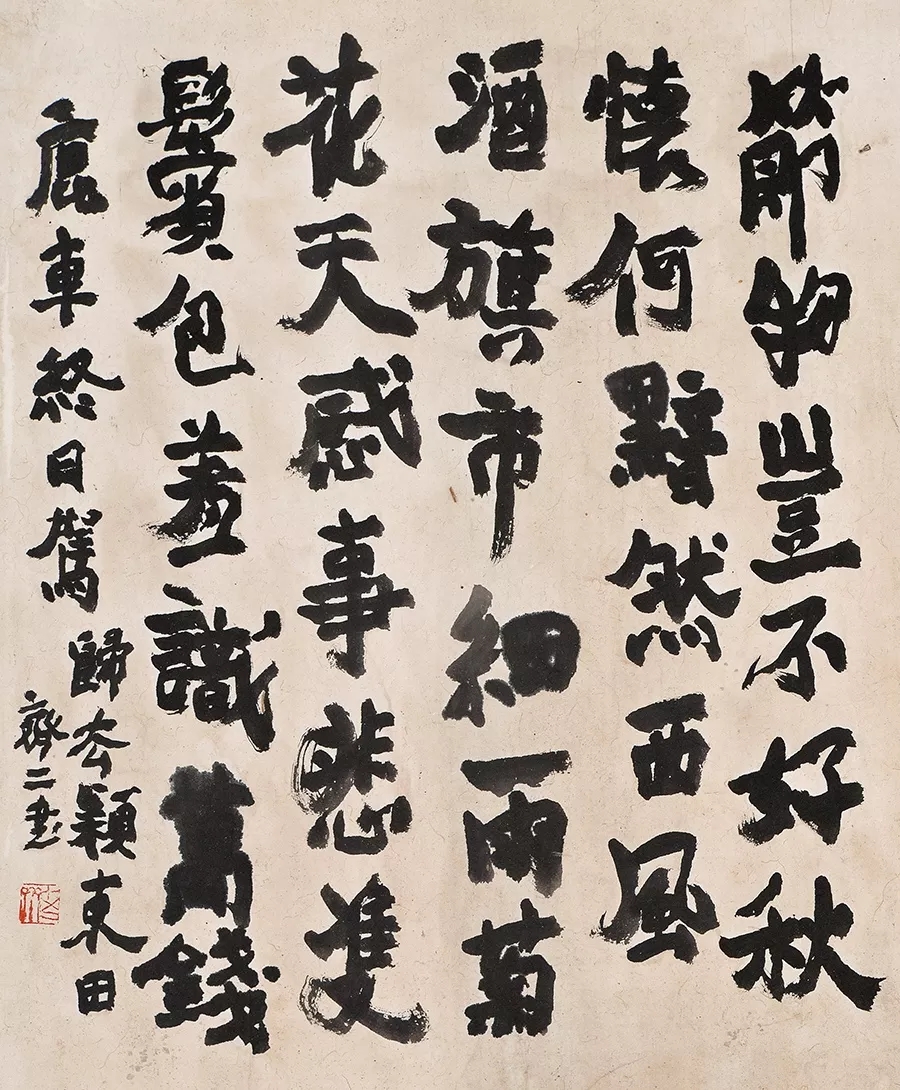 節物豈不好秋
懷何黯然西風
酒旗市細雨菊
花天感事悲雙
鬢包羞識萬錢
鹿車終日駕
歸去穎東田
齊二書